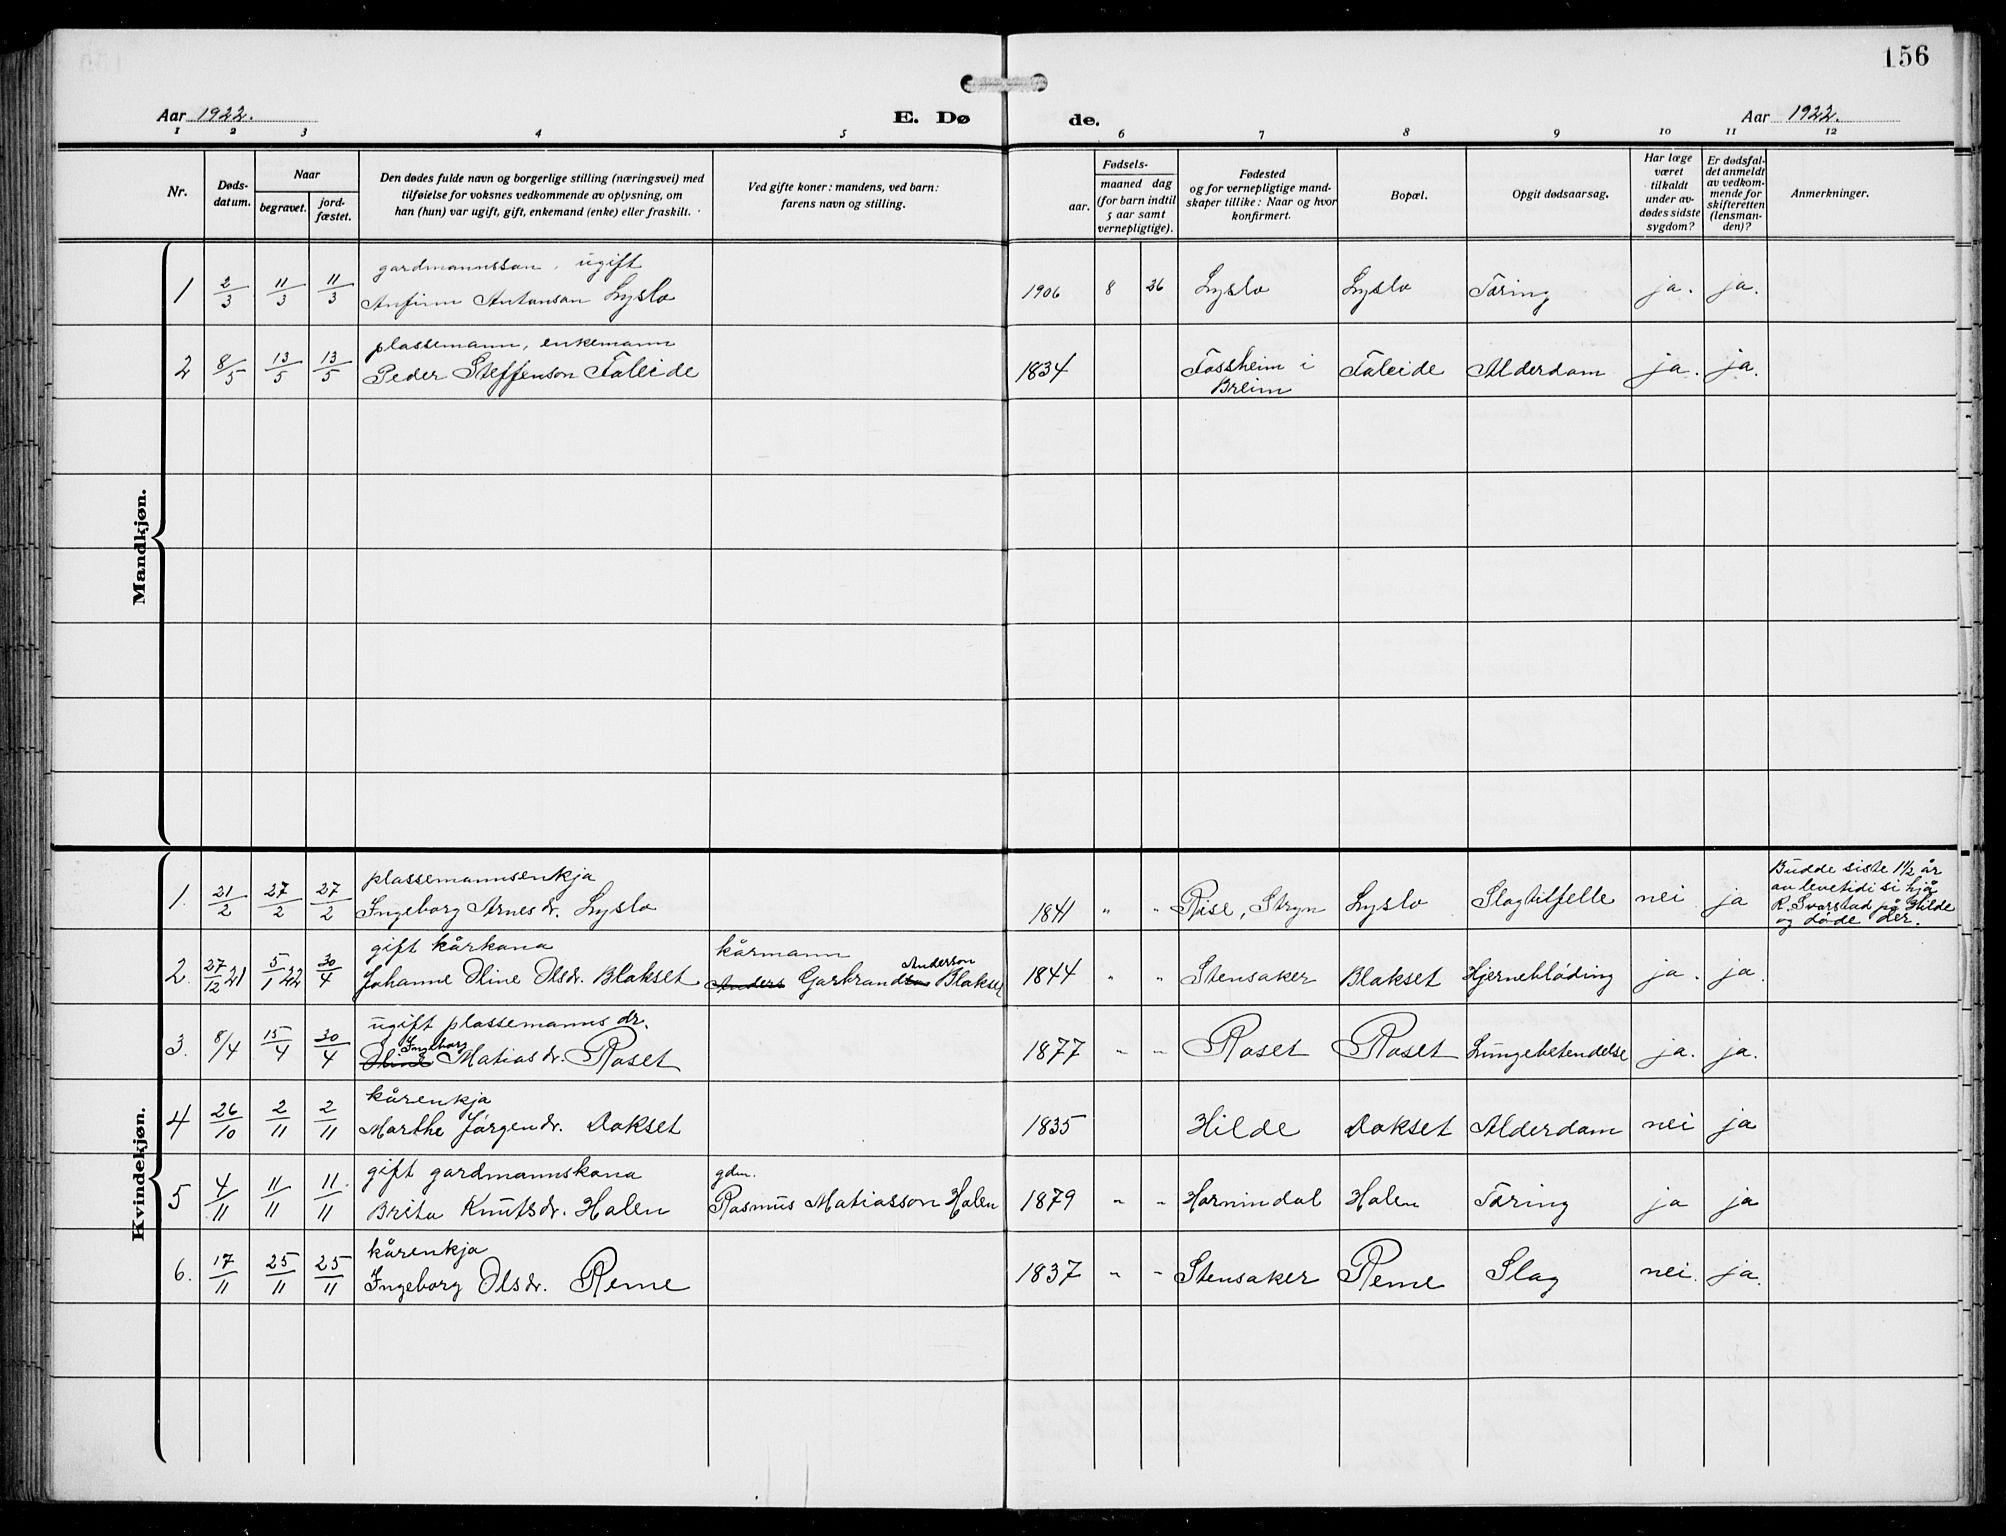 156
Aar 1922.
E. Dø
de.
Aar 1922.
1 2 3 4 5 6 7 8 9 10 11 12
Nr.
Døds-
datum.
Naar
begravet.
jord-
fæstet.
Den dødes fulde navn og borgerlige stilling (næringsvei) med
tilføielse for voksnes vedkommende av oplysning, om
han (hun) var ugift, gift, enkemand (enke) eller fraskilt.
Ved gifte koner: mandens, ved barn:
farens navn og stilling.
Fødsels-
aar.
maaned dag
(for barn indtil
5 aar samt
vernepligtige).
Fødested
og for vernepligtige mand-
skaper tillike: Naar og hvor
konfirmert.
Bopæl.
Opgit dødsaarsag.
Har læge
været
tilkaldt
under av-
dødes sidste
sygdom?
Er dødsfal-
det anmeldt
av vedkom-
mende for
skifteretten
(lensman-
den)?
Anmerkninger.
Mandkjøn.
gardmannsson, ugift
1 2/3 11/3 11/3 Anfinn Antonson Lyslo 1906 8 26 Lyslo Lyslo Tæring ja. ja.
plassemann, enkemann
2 8/5 13/5 13/5 Peder Steffenson Faleide 1834 Fossheim i Faleide Alderdom ja. ja.
Breim
Kvindekjøn.
plassemannsenkja
1. 21/2 27/2 27/2 Ingeborg Arnesdr. Lyslo 1841 " " Rise, Stryn Lyslo Slagtilfelle nei ja
Budde siste 1 1/2 år
av levetidi si hjå
R. Svarstad på Hilde
og døde der.
gift kårkona kårmann Anderson
2. 27/12 21 5/1 22 30/4 Johanne Oline Olsdr. Blakset Anders Garbrandson Blakset 1844 " " Stensaker Blakset Hjerneblöding ja. ja.
ugift plassemannsdr.
Ingeborg
3. 8/4 15/4 30/4 Oline Matiasdr. Roset 1877 " " Roset Roset Lungebetendelse ja. ja.
kårenkja
4 26/10 2/11 2/11 Marthe Jörgendr. Dokset 1835 Hilde Dokset Alderdom nei ja
gift gardmannskona gdm.
5 4/11 11/11 11/11 Brita Knutsdr. Holen Rasmus Matiasson Holen 1879 " " Hornindal Holen Tæring ja ja
kårenkja
6. 17/11 25/11 25/11 Ingeborg Olsdr. Reme 1837 " " Stensaker Reme Slag nei. ja.